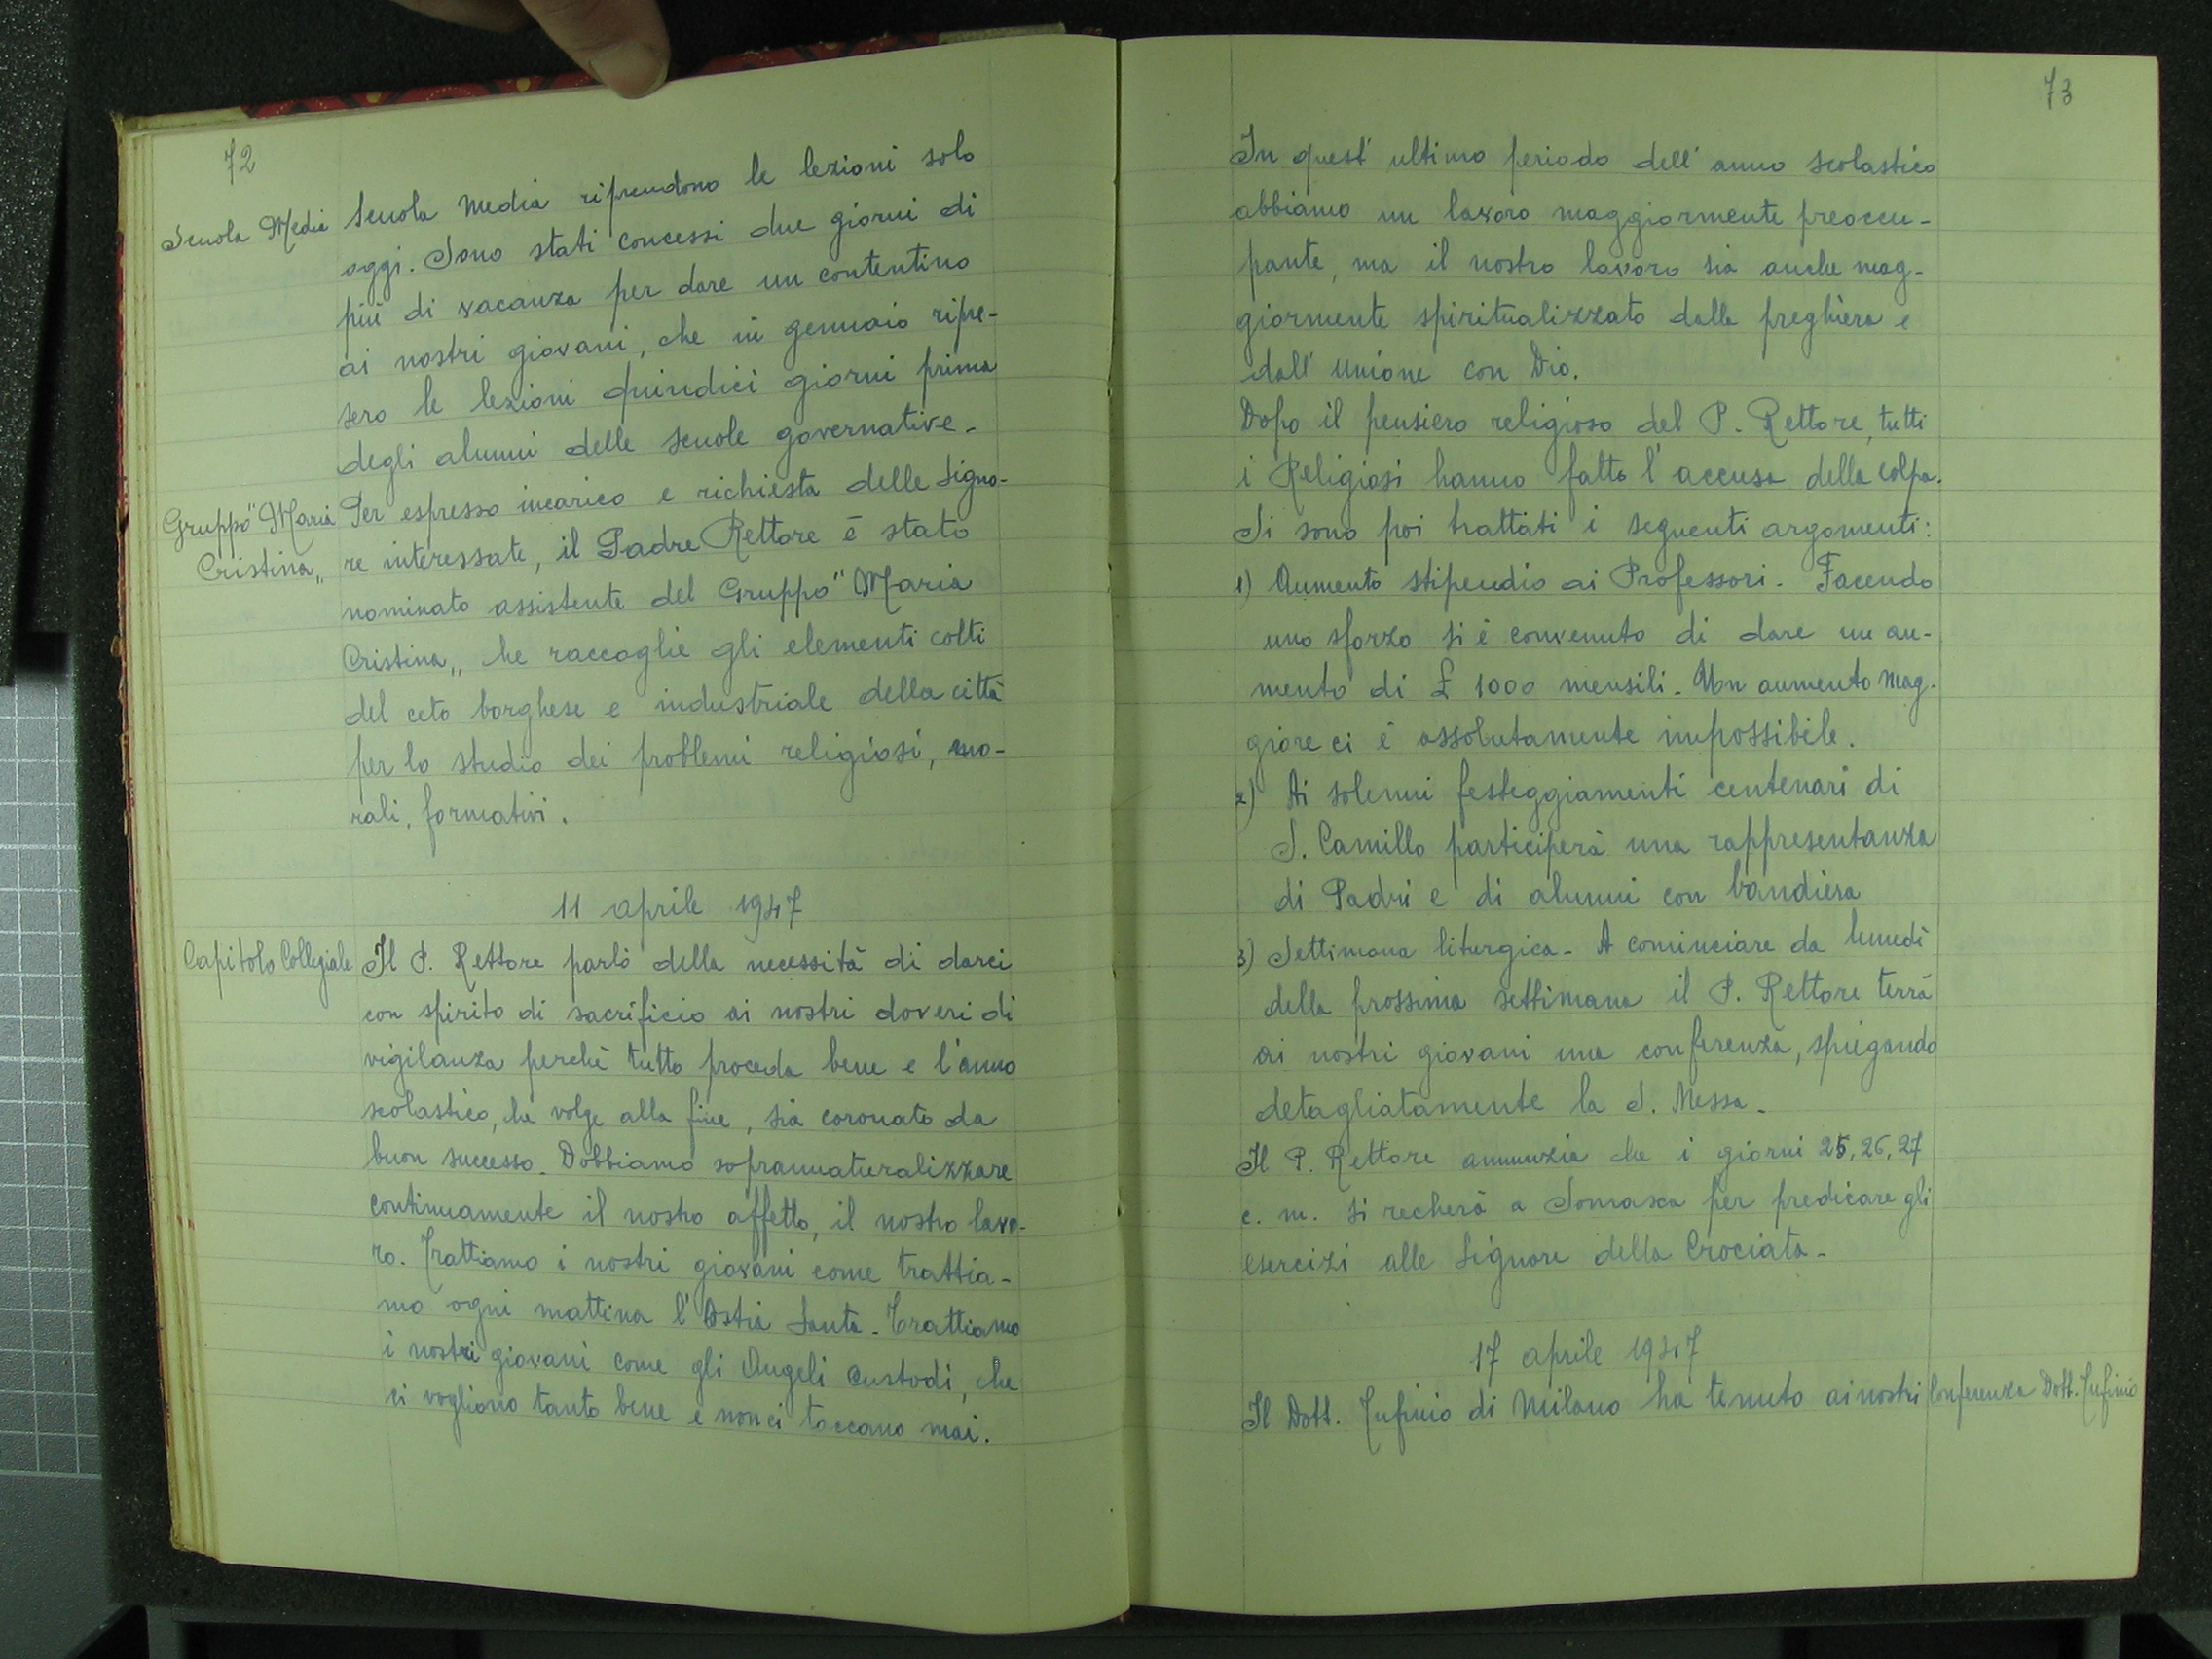 72
Scuola Media
Scuola Media riprendono le lezioni solo
oggi. Sono stati concessi due giorni di
più di vacanza per dare un contentino
ai nostri giovani, che in gennaio ripre-
sero le lezioni quindici giorni prima
degli alunni delle scuole governative.
Gruppo "Maria
Cristina„
Per espresso incarico e richiesta delle Signo-
re interessate, il Padre Rettore è stato
nominato assistente del Gruppo "Maria
Cristina„ che raccoglie gli elementi colti
del ceto borghese e industriale della città
per lo studio dei problemi religiosi, mo-
rali, formativi.
11 aprile 1947
Capitolo Collegiale
Il P. Rettore parlò della necessità di darci
con spirito di sacrificio ai nostri doveri di
vigilanza perchè tutto proceda bene e l'anno
scolastico, che volge alla fine, sia coronato da
buon successo. Dobbiamo soprannaturalizzare
continuamente il nostro affetto, il nostro lavo-
ro. Trattiamo i nostri giovani come trattia-
mo ogni mattina l'Ostia Santa. Trattiamo
i nostri giovani come gli Angeli Custodi, che
ci vogliono tanto bene e non ci toccano mai.
73
In quest'ultimo periodo dell'anno scolastico
abbiamo un lavoro maggiormente preoccu-
pante, ma il nostro lavoro sia anche mag-
giormente spiritualizzato dalla preghiera e
dall'unione con Dio.
Dopo il pensiero religioso del P. Rettore, tutti
i Religiosi hanno fatto l'accusa della colpa.
Si sono poi trattati i seguenti argomenti:
1) Aumento stipendio ai Professori. Facendo
uno sforzo si è convenuto di dare un au-
mento di £ 1000 mensili. Un aumento mag-
giore ci è assolutamente impossibile.
2) Ai solenni festeggiamenti centenari di
S. Camillo parteciperà una rappresentanza
di Padri e di alunni con bandiera
3) Settimana liturgica. A cominciare da lunedì
della prossima settimana il P. Rettore terrà
ai nostri giovani una conferenza, spiegando
detagliatamente la S. Messa.
Il P. Rettore annunzia che i giorni 25, 26, 27
c. m. si recherà a Somasca per predicare gli
esercizi alle Signore della Crociata.
17 aprile 1947
Il Dott. di Milano ha tenuto ai nostri
Conferenza Dott.